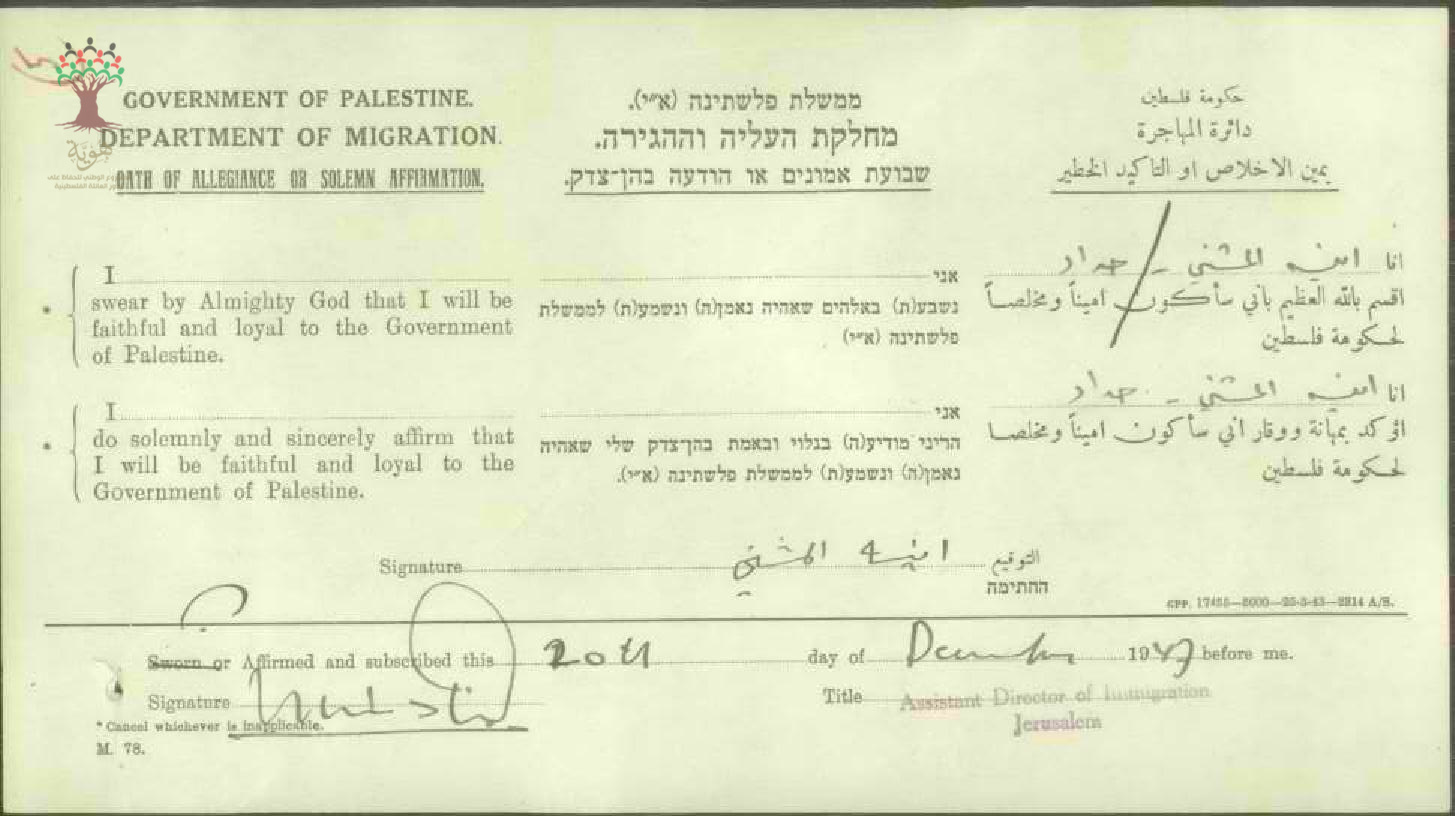 GOVERNMENT OF PALESTINE.
DEPARTMENT OF MIGRATION.
OATH OF ALLEGIANCE OR SOLEMN AFFIRMATION.
ממשלת פלשתינה (א״י).
מחלקת העליה וההגירה.
שבועת אמונים או הודעה בהן־צדק.
حكومة فلسطين
دائرة المهاجرة
يمين الاخلاص او التاكيد الخطير
هوية
* I
swear by Almighty God that I will be
faithful and loyal to the Government
of Palestine.
אני
נשבע(ת) באלהים שאהיה נאמן(ה) ונשמע(ת) לממשלת
פלשתינה (א״י)
انا امينه المشني - حداد
اقسم بالله العظيم باني سأكون اميناً ومخلصاً
لحكومة فلسطين
* I
do solemnly and sincerely affirm that
I will be faithful and loyal to the
Government of Palestine.
אני
הריני מודיע(ה) בגלוי ובאמת בהן־צדק שלי שאהיה
נאמן(ה) ונשמע(ת) לממשלת פלשתינה (א״י).
انا امينه المشني - حداد
اؤكد بمهانة ووقار اني سأكون اميناً ومخلصا
لحكومة فلسطين
Signature امينه المشني التوقيع
החתימה
Sworn or Affirmed and subscribed this 20th day of December 1947 before me.
Signature
Title Assistant Director of Immigration
Jerusalem
* Cancel whichever is inapplicable.
M. 78.